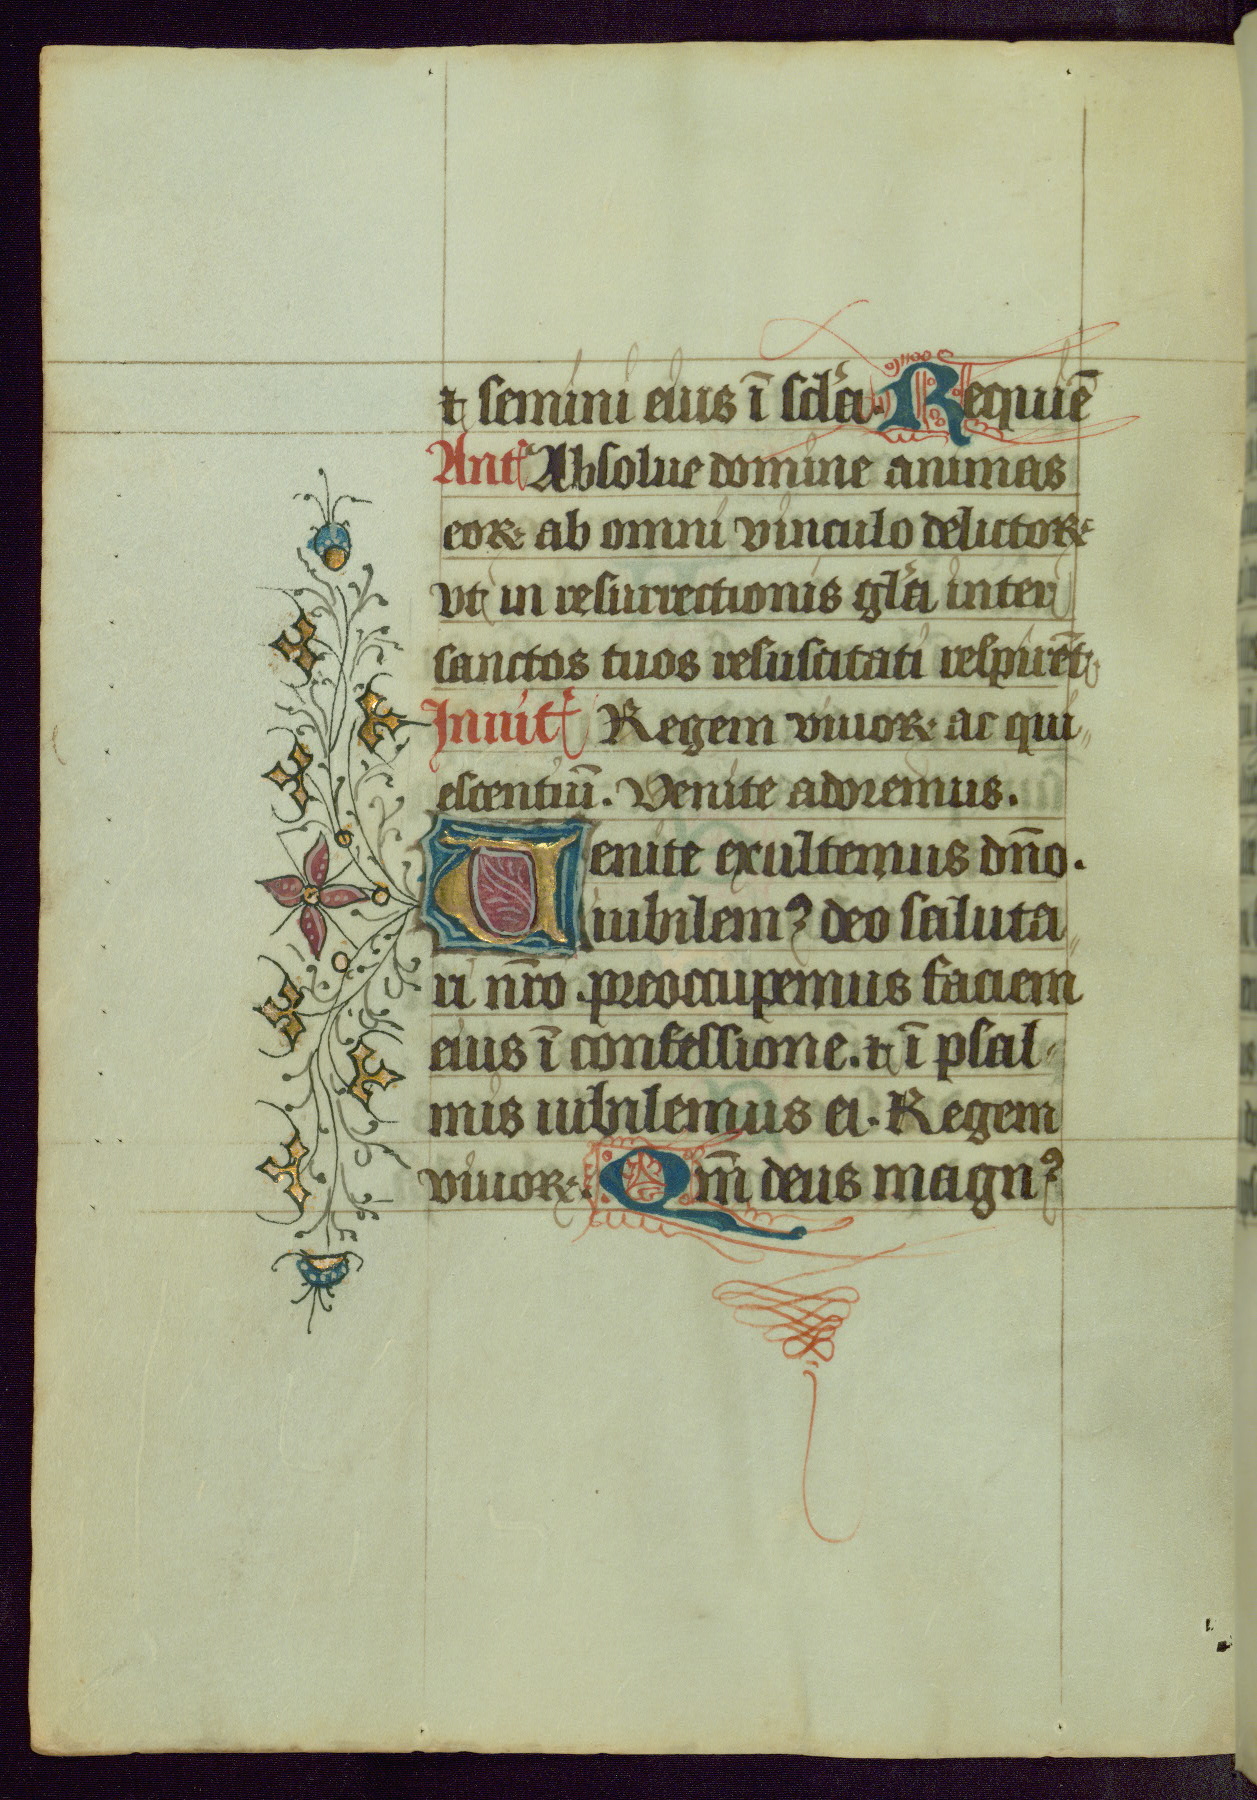 ⁊ semini eius ī scl̄a. Requiē
Ant̄ Absolue domine animas
eoꝝ ab omni vinculo delictoꝝ
vt in resurrectionis gl̄a inter
sanctos tuos resuscitati respirēt
Inuit̄ Regem viuoꝝ ac qui
escentiū. Venite adoremus.
Venite exultemus dn̄o.
iubilemꝰ deo saluta
ri nr̄o. preoccupemus faciem
eius ī confessione. ⁊ ī psal
mis iubilemus ei. Regem
viuoꝝ. Qm̄ deus magnꝰ